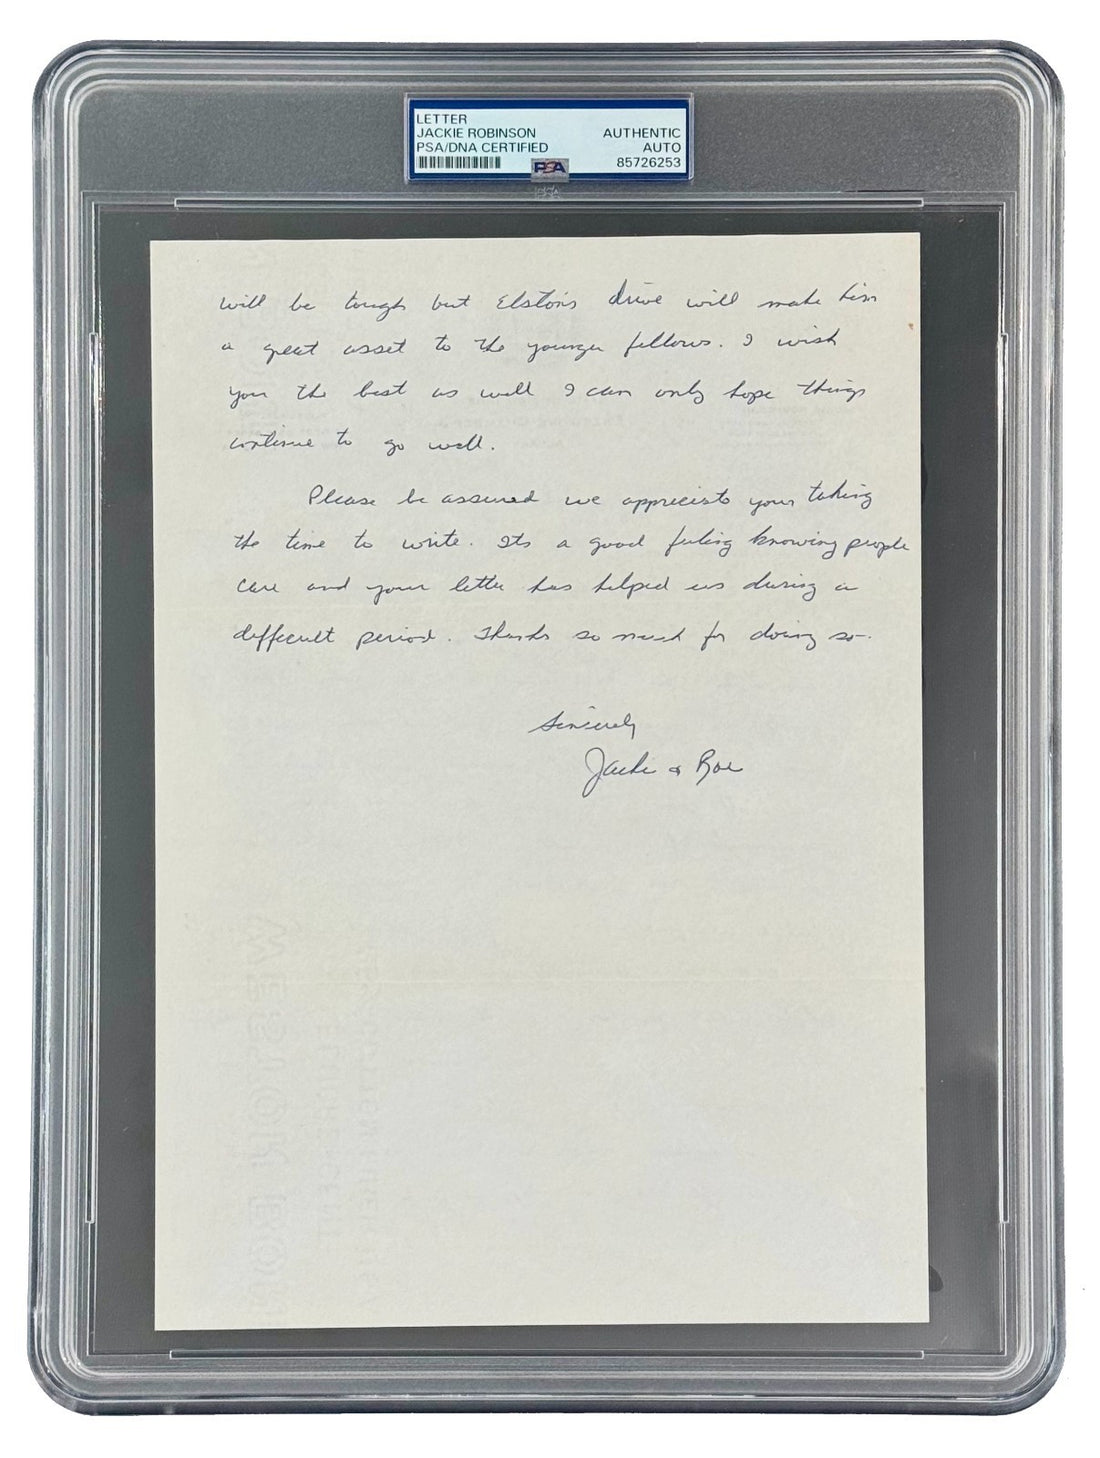 LETTER
JACKIE ROBINSON
PSA/DNA CERTIFIED
AUTHENTIC
AUTO
85726253
PSA
will be tough but Elston's drive will make him
a great asset to the younger fellows. I wish
you the best as well I can only hope things
continue to go well.
Please be assured we appreciate your taking
the time to write. Its a good feeling knowing people
care and your letter has helped us during a
difficult period. Thanks so much for doing so-
Sincerely
Jackie & Rae